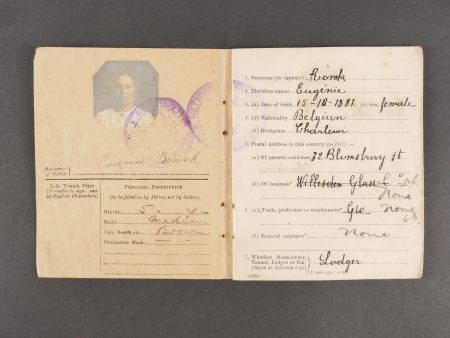 Signature of Holder } Eugenie
Left Thumb Print
(if unable to sign name
in English Characters)
PERSONAL DESCRIPTION
(to be filled in by Police, not by holder).
Height 5
Build Medium
Hair, Brown
Distinctive Mark
1. Surname (in capitals)
2. Christian names Eugénie
3. (a) Date of birth 15-10-1881 (b) Sex female
4. (a) Nationality Belgian
(b) Birthplace Charleroi
5. Postal Address in this country
(a) Of present residence 32 Blumsbury St
(b) Of business Willesden Glass
None
6. (a) Trade, profession or employment None
(b) Name of employer None
7. Whether Householder, Tenant, Lodger or Employee at Address 5 (a) } Lodger